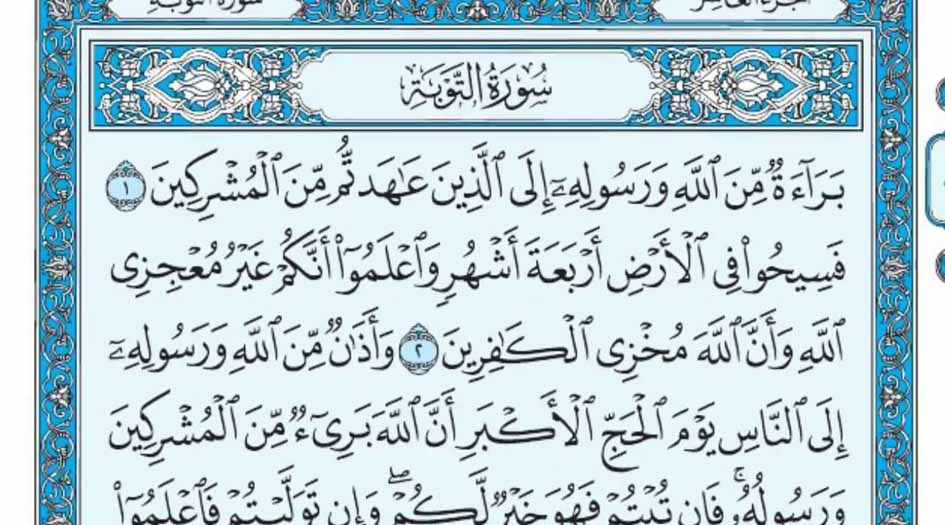 سورة التوبة
الجزء العاشر
سُورَةُ التَّوْبَةِ
بَرَآءَةٌ مِّنَ ٱللَّهِ وَرَسُولِهِۦٓ إِلَى ٱلَّذِينَ عَٰهَدتُّم مِّنَ ٱلْمُشْرِكِينَ ١
فَسِيحُوا۟ فِى ٱلْأَرْضِ أَرْبَعَةَ أَشْهُرٍ وَٱعْلَمُوٓا۟ أَنَّكُمْ غَيْرُ مُعْجِزِى
ٱللَّهِ وَأَنَّ ٱللَّهَ مُخْزِى ٱلْكَٰفِرِينَ ٢ وَأَذَٰنٌ مِّنَ ٱللَّهِ وَرَسُولِهِۦٓ
إِلَى ٱلنَّاسِ يَوْمَ ٱلْحَجِّ ٱلْأَكْبَرِ أَنَّ ٱللَّهَ بَرِىٓءٌ مِّنَ ٱلْمُشْرِكِينَ
وَرَسُولُهُۥ ۚ فَإِن تُبْتُمْ فَهُوَ خَيْرٌ لَّكُمْ ۖ وَإِن تَوَلَّيْتُمْ فَٱعْلَمُوٓا۟